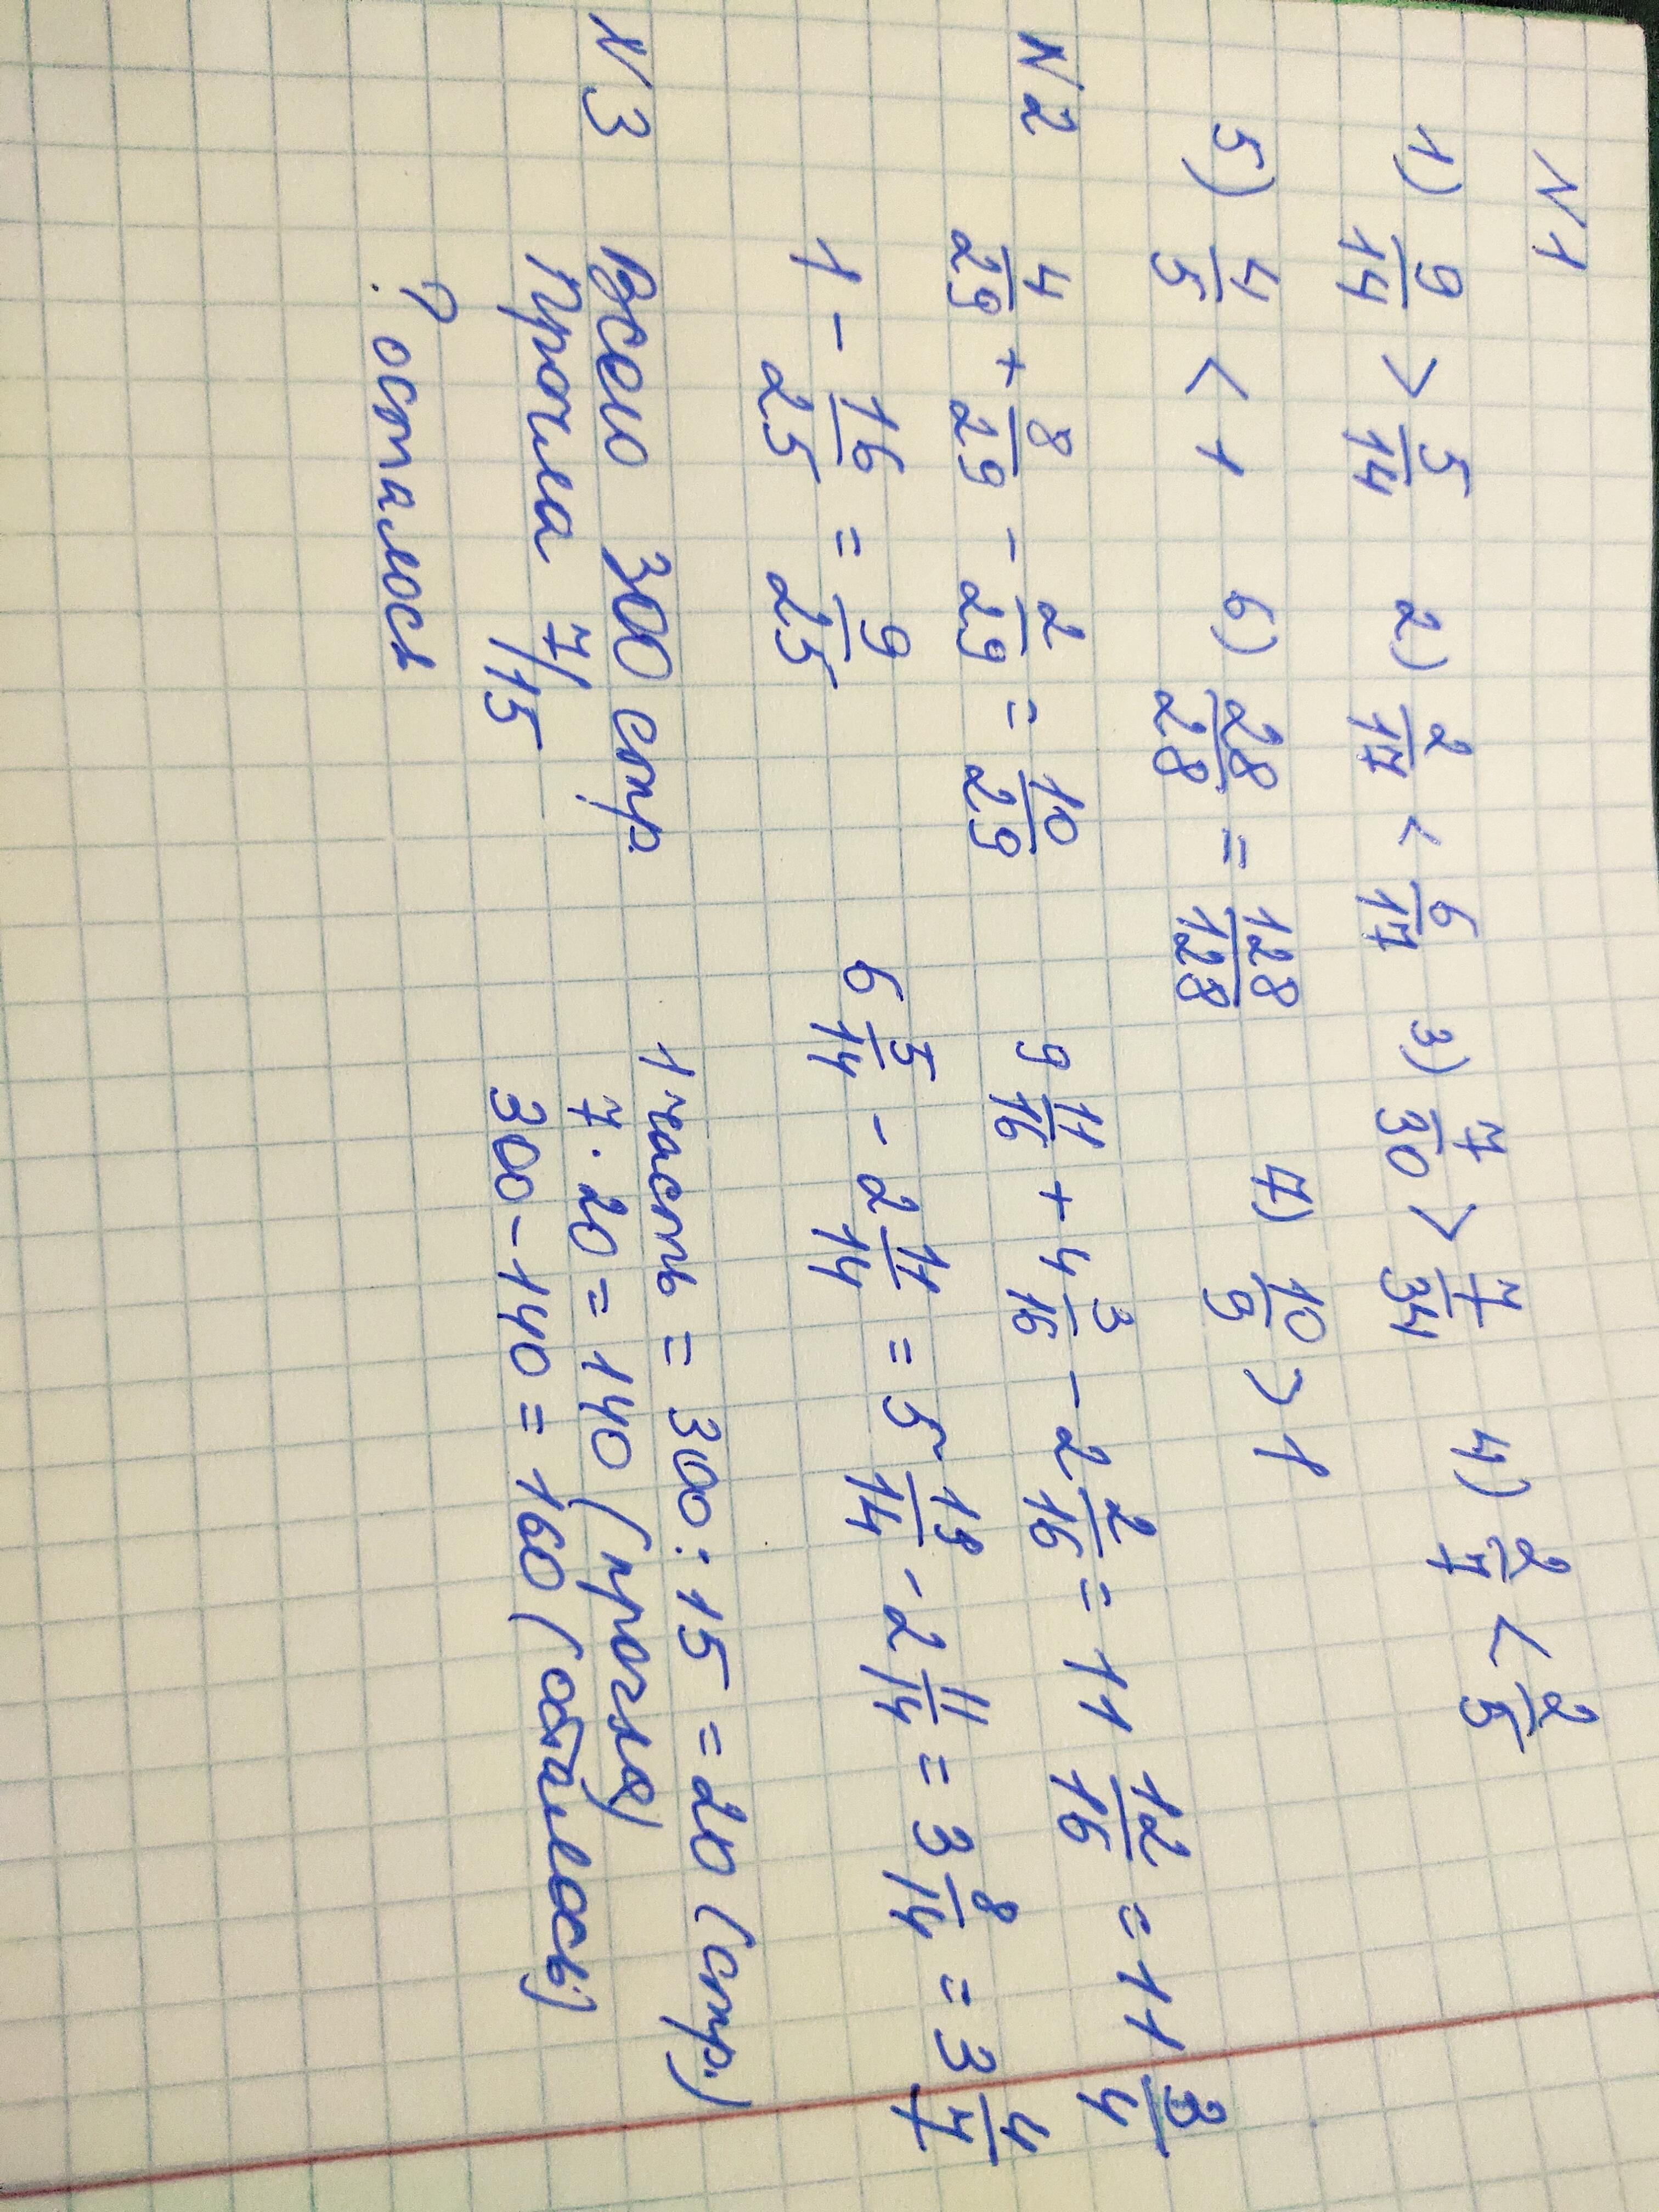 N 1
1) 9/14 > 5/14 2) 2/17 < 6/17 3) 7/30 > 7/34 4) 2/7 < 2/5
5) 4/5 < 1 6) 28/28 = 128/128 7) 10/9 > 1
N 2
4/29 + 8/29 - 2/29 = 10/29 9 11/16 + 4 3/16 - 2 2/16 = 11 12/16 = 11 3/4
1 - 16/25 = 9/25 6 5/14 - 2 11/14 = 5 19/14 - 2 11/14 = 3 8/14 = 3 4/7
N 3 Всего 300 стр. 1 часть = 300 : 15 = 20 (стр.)
Прочла 7/15 7 · 20 = 140 (прочла)
? осталось 300 - 140 = 160 (осталось)